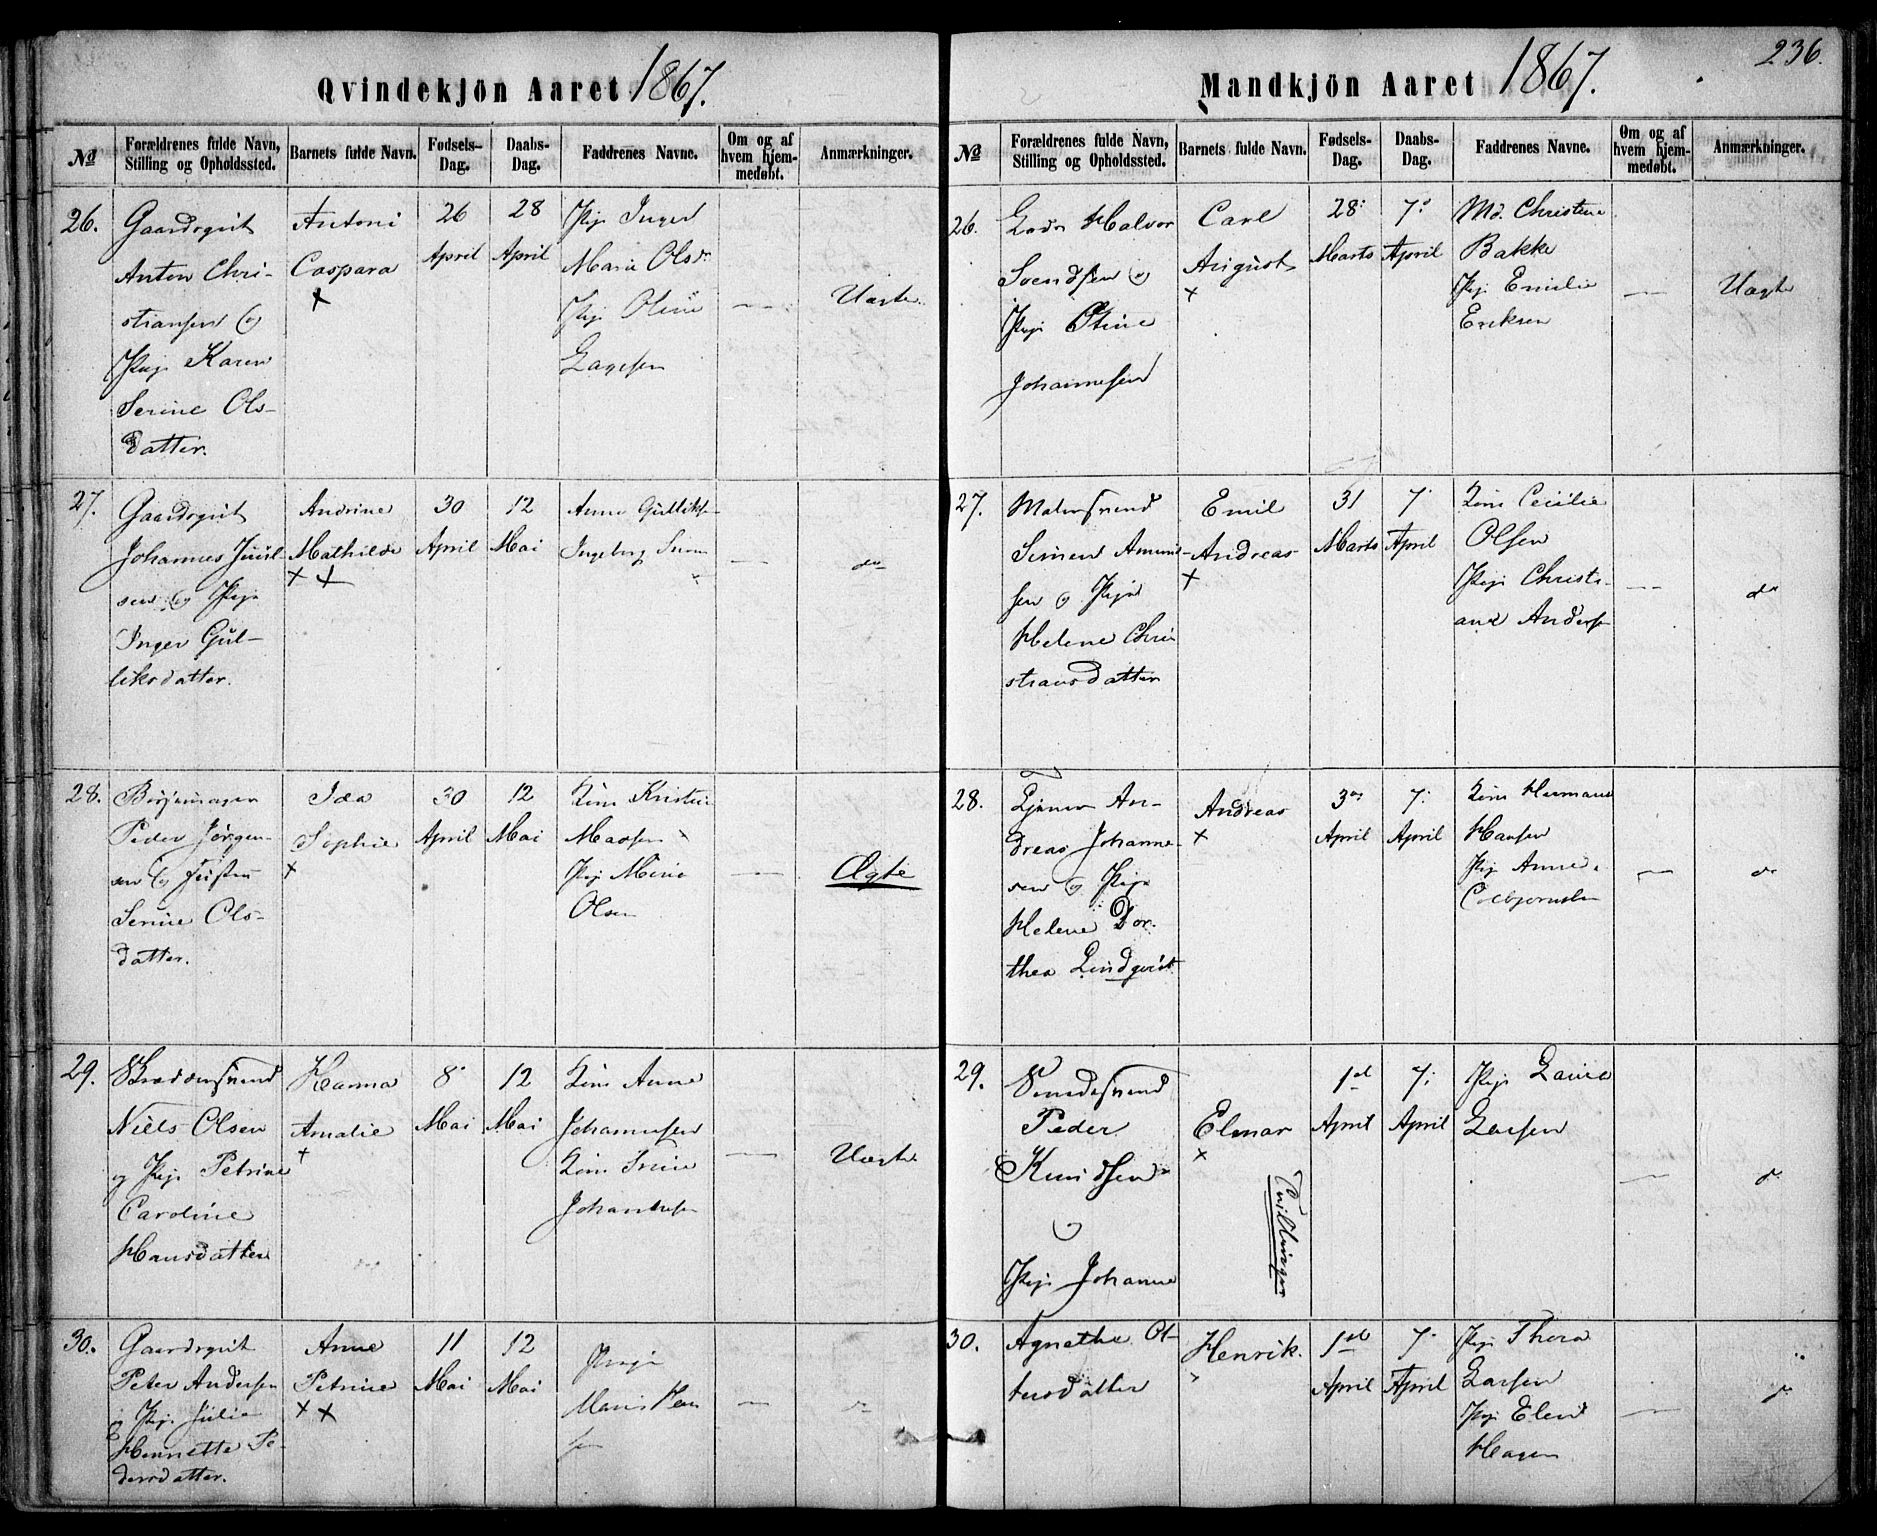 Qvindekjön Aaret 1867.
No
Forældrenes fulde Navn,
Stilling og Opholdssted.
Barnets fulde Navn.
Fødsels-
Dag.
Daabs-
Dag.
Faddrenes Navne.
Om og af
hvem hjem-
medøbt.
Anmærkninger.
26.
Gaardsgut
Anton Chri-
stiansen og
Pige Karen
Serine Ols-
datter.
Antoni
Caspara
×
26
April
28
April
Pige Inger
Marie Olsdr
Pige Oline
Uægte
27.
Gaardsgut
Johannes Juul-
sen og Pige
Inger Gul-
liksdatter.
Andrine
Mathilde
× ×
30
April
12
Mai
Anne Gulliks
Ingeborg
do
28.
Peder Jörgen-
sen og
Serine Ols-
datter.
Ida
Sophie
×
30
April
12
Mai
Kone Kristin
Pige
Olsen
Ægte
29.
Niels Olsen
og Pige Petrine
Caroline
Hansdatter
Hanna
Amalie
×
8
Mai
12
Mai
Kone Anne
Johannesen
Kone
Johannesen
Uægte
30.
Gaardsgut
Peter Andersen
og Pige Julie
Hennette Pe-
dersdatter.
Anne
Petrine
× ×
11
Mai
12
Mai
Pige
236.
Mandkjön Aaret 1867.
No
Forældrenes fulde Navn,
Stilling og Opholdssted.
Barnets fulde Navn.
Fødsels-
Dag.
Daabs-
Dag.
Faddrenes Navne.
Om og af
hvem hjem-
medøbt.
Anmærkninger.
26.
Halvor
Svendsen og
Pige Oline
Johannesen
Carl
August
×
28
Marts
7
April
Md. Christine
Bakke
Pige Emilie
Eriksen
Uægte
27.
Malersvend
Simen Amund-
sen og Pige
Helene Chri
stiansdatter
Emil
Andreas
×
31
Marts
7
April
Kone Cecilie
Olsen
Pige Christi-
ane Anders
do
28.
Tjener An-
dreas Johanne-
sen og Pige
Helene Dor-
thea Lindqvist
Andreas
×
3
April
7
April
Kone Hermana
Hansen
Pige Anne
do
29.
Smedesvend
Peder
Knudsen
og
Pige Johanne
Elmar
×
Tvillinger
1
April
7
April
Pige Laura
Larsen
do
30.
Agnethe Ol-
tersdatter
Henrik.
1
April
7
April
Pige Thora
Larsen
Pige Elen
Hagen